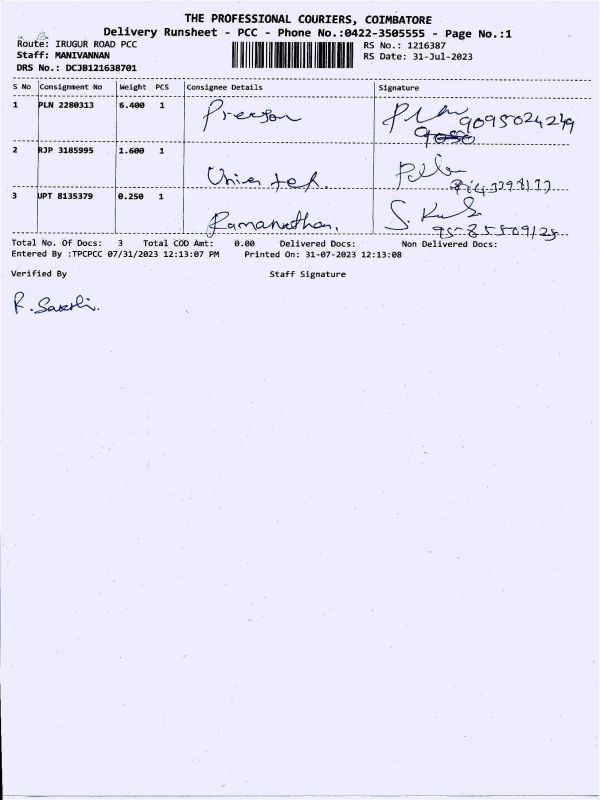 THE PROFESSIONAL COURIERS, COIMBATORE
Delivery Runsheet - PCC - Phone No.:0422-3505555 - Page No.:1
Route: IRUGUR ROAD PCC
RS No.: 1216387
Staff: MANIVANNAN
RS Date: 31-Jul-2023
DRS No.: DCJB121638701
S No Consignment No Weight PCS Consignee Details Signature
1 PLN 2280313 6.400 1 9095024249
2 RJP 3185995 1.600 1
3 UPT 8135379 0.250 1 Ramanathan.
Total No. Of Docs: 3 Total COD Amt: 0.00 Delivered Docs: Non Delivered Docs:
Entered By :TPCPCC 07/31/2023 12:13:07 PM Printed On: 31-07-2023 12:13:08
Verified By Staff Signature